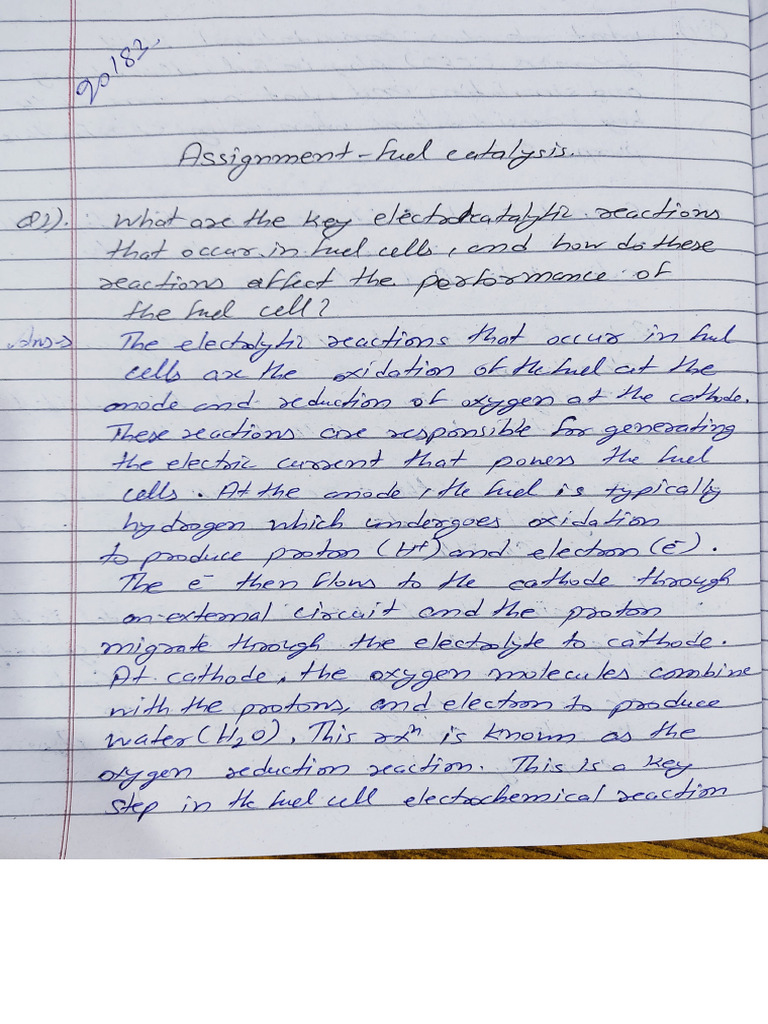 20182
Assignment - fuel catalysis.
Q1). What are the key electrocatalytic reactions
that occur in fuel cells, and how do these
reactions affect the performance of
the fuel cell?
Ans→ The electrolytic reactions that occur in fuel
cells are the oxidation of the fuel at the
anode and reduction of oxygen at the cathode.
These reactions are responsible for generating
the electric current that powers the fuel
cells. At the anode, the fuel is typically
hydrogen which undergoes oxidation
to produce proton (H+) and electron (e-).
The e- then flows to the cathode through
an external circuit and the proton
migrate through the electrolyte to cathode.
At cathode, the oxygen molecules combine
with the protons, and electron to produce
water (H2O). This rxn is known as the
oxygen reduction reaction. This is a key
step in the fuel cell electrochemical reaction